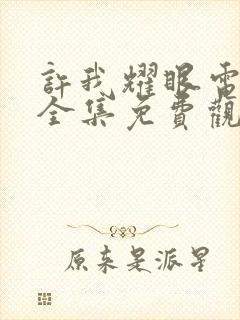 許我耀眼電
全集免費觀
原来是派星